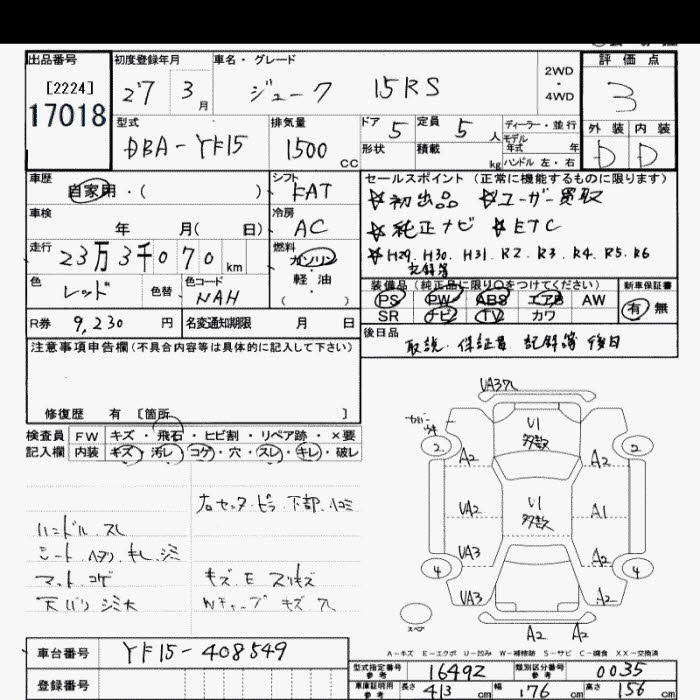 出品番号 初度登録年月 車名・グレード 評価点
[2224]
17018
27 3 月 ジューク 15RS 2WD ・ 4WD 3
型式 排気量 ドア 定員 ディーラー・並行 外装 内装
DBA-YF15 1500 cc 5 5 人 モデル年式 年 D D
形状 積載 kg ハンドル 左・右
車歴 シフト セールスポイント (正常に機能するものに限ります)
自家用・( ) FAT ☆初出品 ☆ユーザー買取
車検 冷房 ☆純正ナビ ☆ETC
年 月( 日) AC
走行 燃料 ☆H29. H30. H31. R2. R3. R4. R5. R6
23万3千070km ガソリン 記録簿
色 色替 色コード 軽・油 装備品(純正品に限り○をつけてください) 新車保証書
レッド NAH ( ) PS PW ABS エアB AW 有 無
R券 9,230 円 名変通知期限 月 日 SR ナビ TV カワ
注意事項申告欄(不具合内容等は具体的に記入して下さい) 後日品
取説.保証書 記録簿 後日
修復歴 有 [箇所 ]
検査員 FW キズ・飛石・ヒビ割・リペア跡・×要
記入欄 内装 キズ・汚レ・コゲ・穴・スレ・キレ・破レ
UA3ワレ
U1 多数
2 2
A2 A2
右センターピラー下部.凹ミ
UA2 U1 多数 A1
ハンドル スレ
シート ヘタリ キレ シミ
UA3 A2
マット コゲ キズE スリキズ
4 4
天バリ シミ大
UA3 A2
スペア
A2 A2
車台番号 YF15-408549
A-キズ E-エクボ U-凹み W-補修跡 S-サビ C-腐食 XX-交換済
型式指定番号 参考 16492 類別区分番号 参考 0035
登録番号 車庫証明用 参考 長さ 413 cm 幅 176 cm 高さ 156 cm